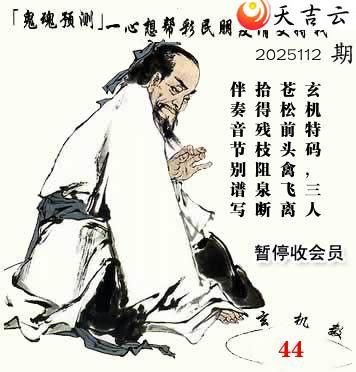 天吉云
「鬼魂预测」一心想帮彩民朋
2025112 期
玄机特码，三人
苍松前头禽飞离
拾得残枝阻泉断
伴奏音节别谱写
暂停收会员
玄机
44